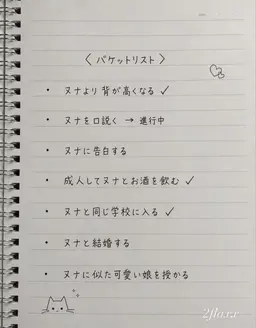 〈 バケットリスト 〉
• ヌナより 背が高くなる ✓
• ヌナを口説く → 進行中
• ヌナに告白する
• 成人してヌナとお酒を飲む ✓
• ヌナと同じ学校に入る ✓
• ヌナと結婚する
• ヌナに似た可愛い娘を授かる